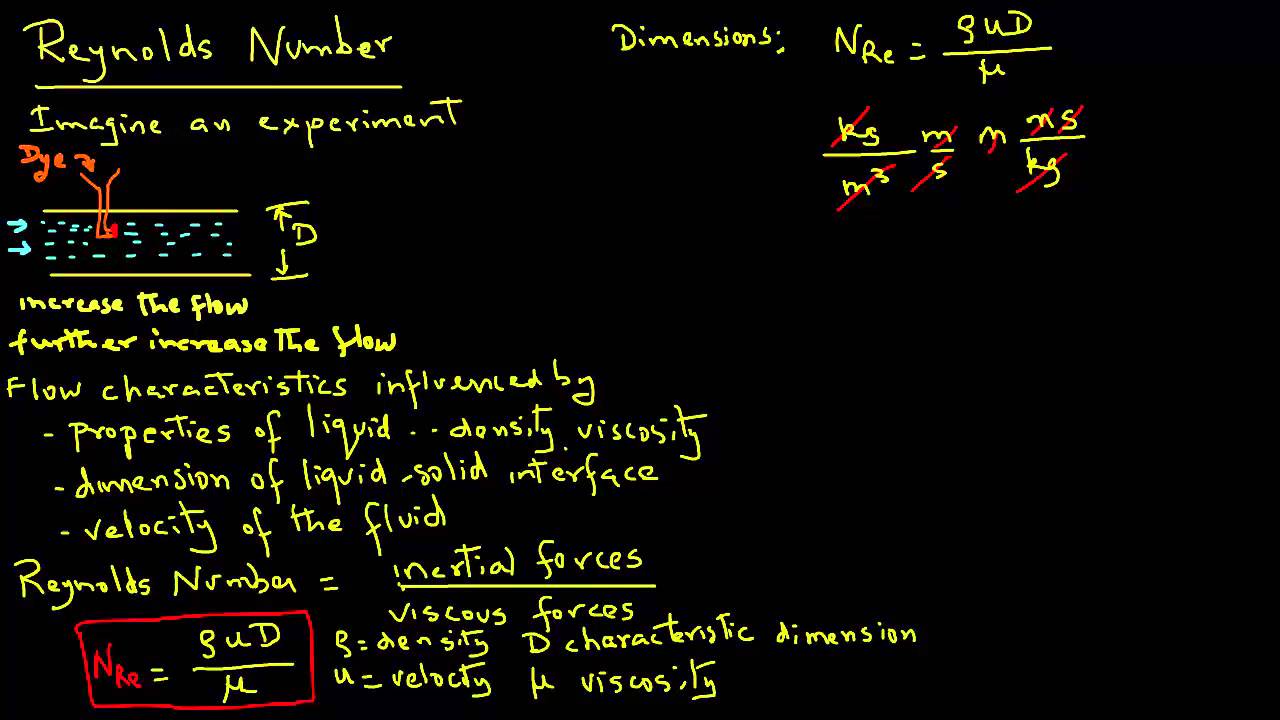 Reynolds Number
Imagine an experiment
Dye
D
increase the flow
further increase the flow
Flow characteristics influenced by
- properties of liquid .. density viscosity
- dimension of liquid-solid interface
- velocity of the fluid
Reynolds Number = inertial forces
viscous forces
N_Re = ρuD / μ
ρ = density D characteristic dimension
u = velocity μ viscosity
Dimensions: N_Re = ρuD / μ
kg m m ms
m³ s kg